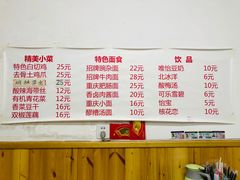 精美小菜
特色白切鸡 25元
去骨土鸡爪 25元
25元
酸辣海带丝 12元
有机青花菜 12元
香菜豆干 16元
双椒莲藕 16元
特色面食
招牌猪杂面 22元
招牌牛肉面 28元
重庆肥肠面 25元
香卤肉酱面 20元
重庆小面 16元
醪糟汤圆 10元
饮品
唯怡豆奶 10元
北冰洋 6元
酸梅汤 10元
可乐雪碧 6元
怡宝 5元
核花恋 10元